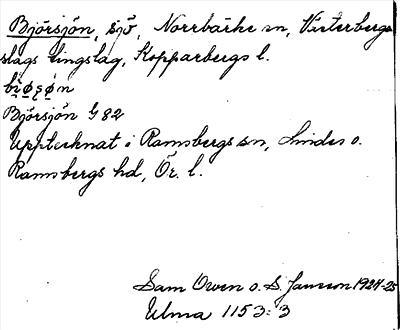 Björsjön, sjö, Norrbärke sn, Västerbergs-
slags tingslag, Kopparbergs l.
Björsjön G 82
Upptecknat i Ramsbergs sn, Lindes o.
Ramsbergs hd, Ör. l.
Sam Owen o. S. Janson 1924-25
Ulma 1153:3